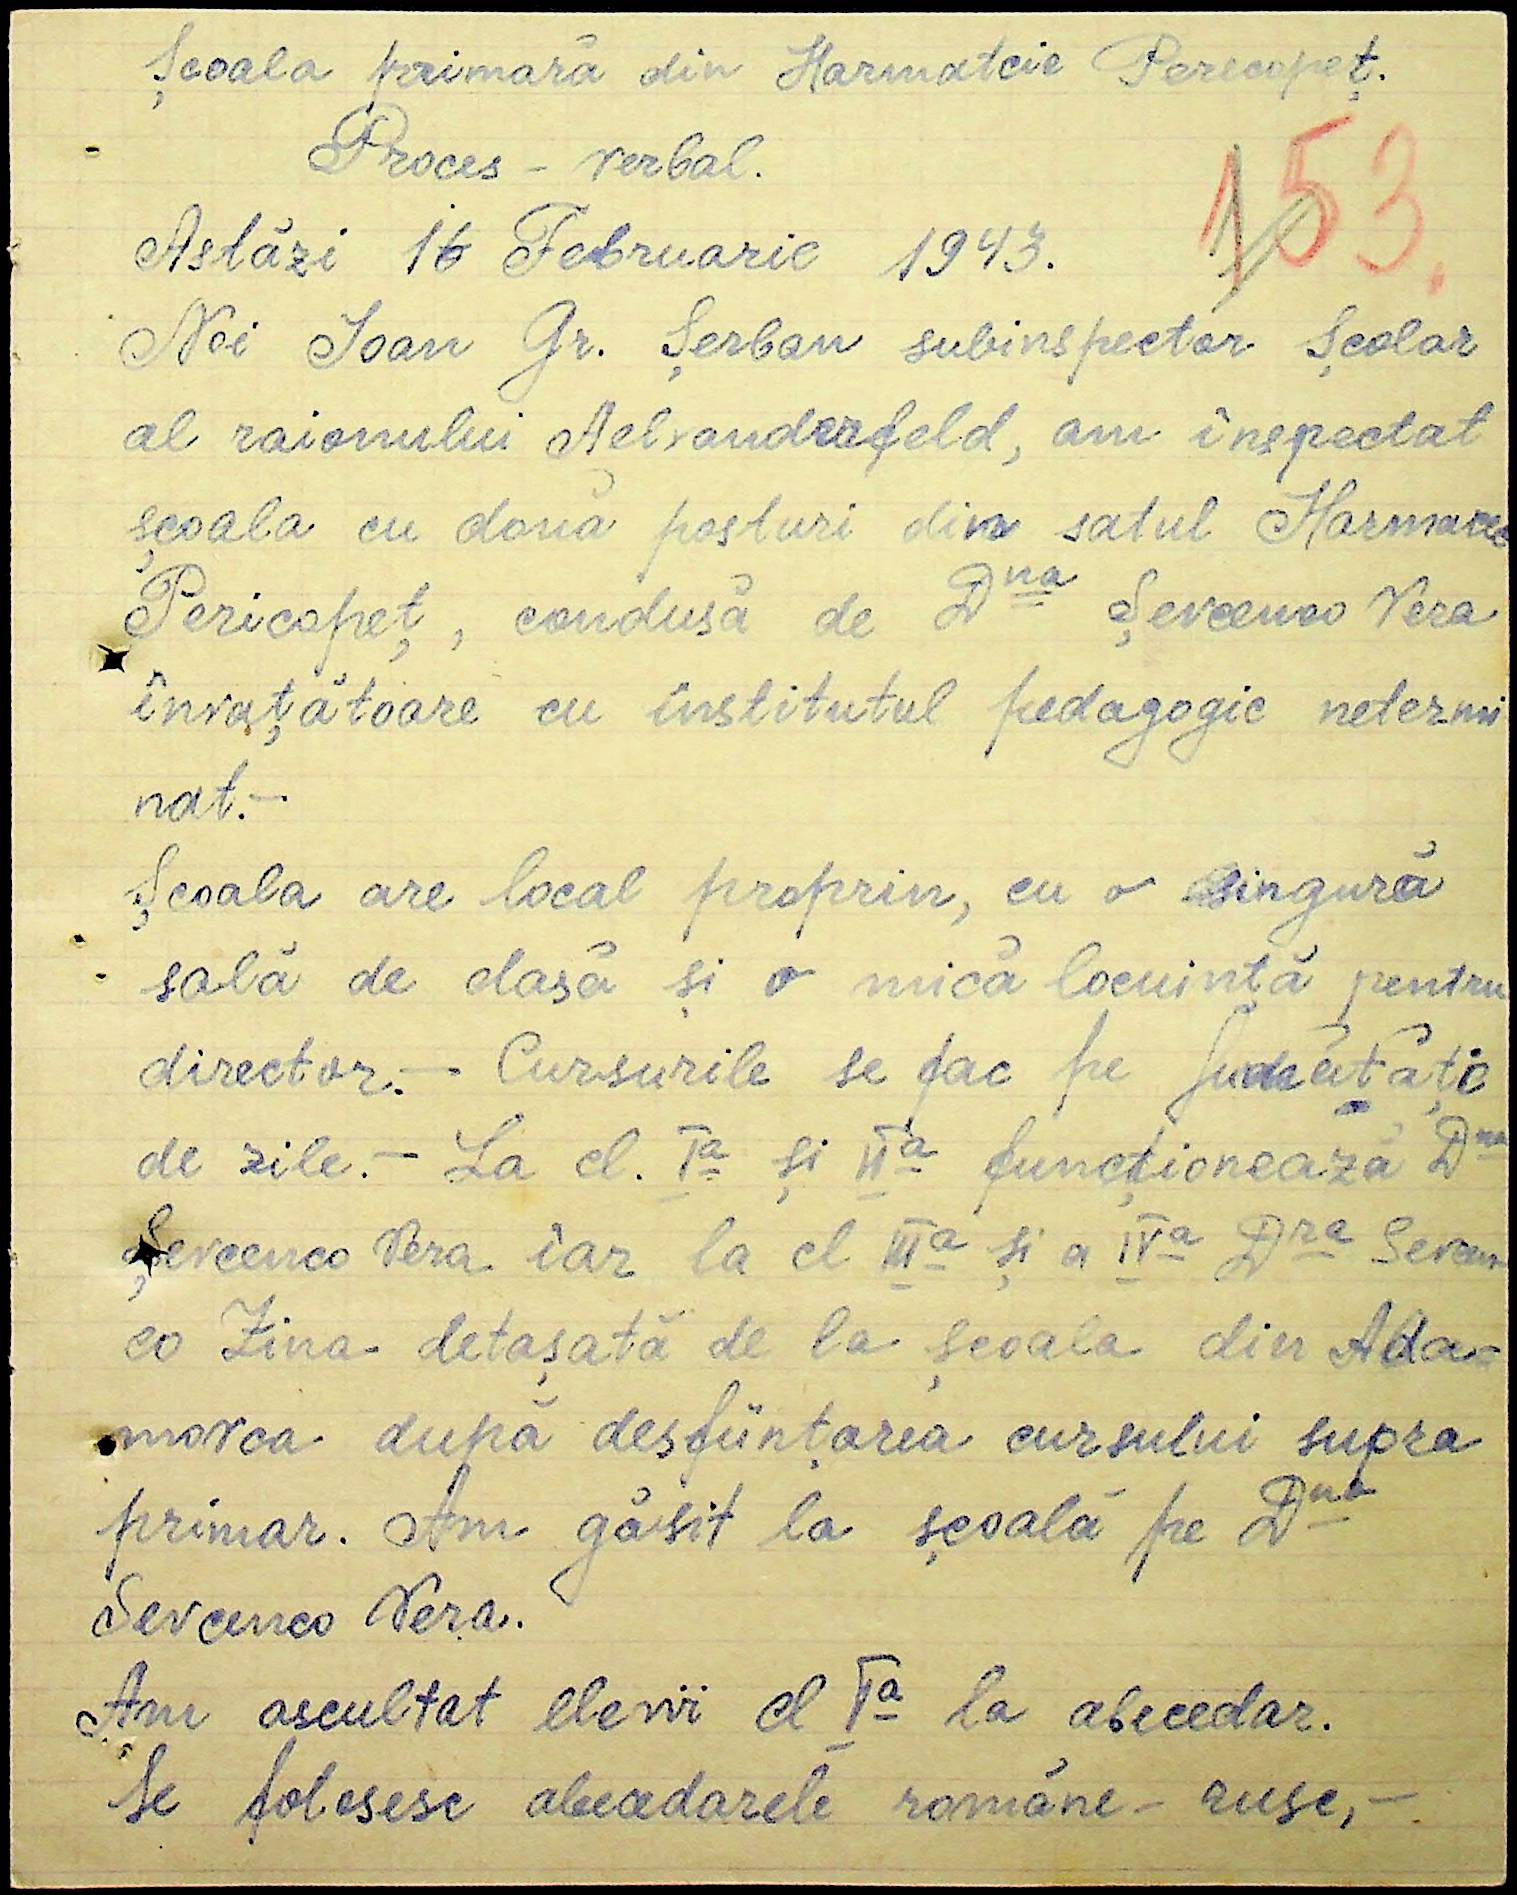 Școala primară din Harmatcie Perecopeț.
Proces - verbal.
153.
Astăzi 16 Februarie 1943.
Noi Ioan Gr. Șerban subinspector Școlar
al raionului Aelxanderfeld, am inspectat
școala cu două posturi din satul
Pericopeț, condusă de Dna Șevcenco Vera
învațătoare cu institutul pedagogic netermi
nat.-
Școala are local propriu, cu o singură
sală de clasă și o mică locuință pentru
director.- Cursurile se fac pe jumătăți
de zile.- La cl. Ia și IIa funcționează Dna
Șevcenco Vera iar la cl IIIa și a IVa Dra Sevcen
co Zina detașată de la școala din Ada-
movca după desființarea cursului supra
primar. Am găsit la școală pe Dna
Sevcenco Vera.
Am ascultat elevii cl Ia la abecedar.
Se folosesc abecedarele române - ruse,-